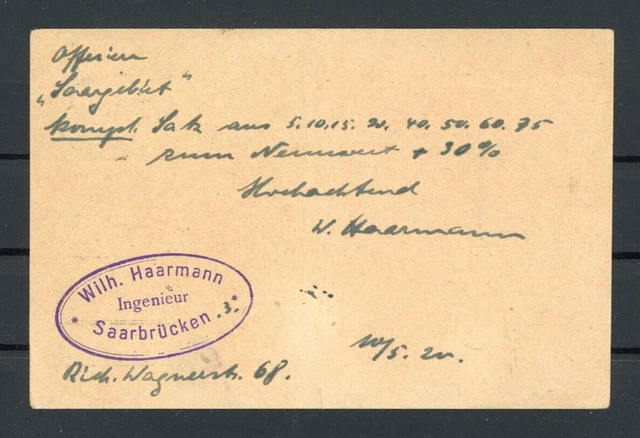 Offerier
„Saargebiet"
kompl. Satz aus 5. 10. 15. 20. 40. 50. 60. 75
zum Nennwert + 30%
Hochachtend
W. Haarmann
Wilh. Haarmann
Ingenieur
* Saarbrücken * .3.
10/5. 20.
Rich. Wagnerstr. 68.